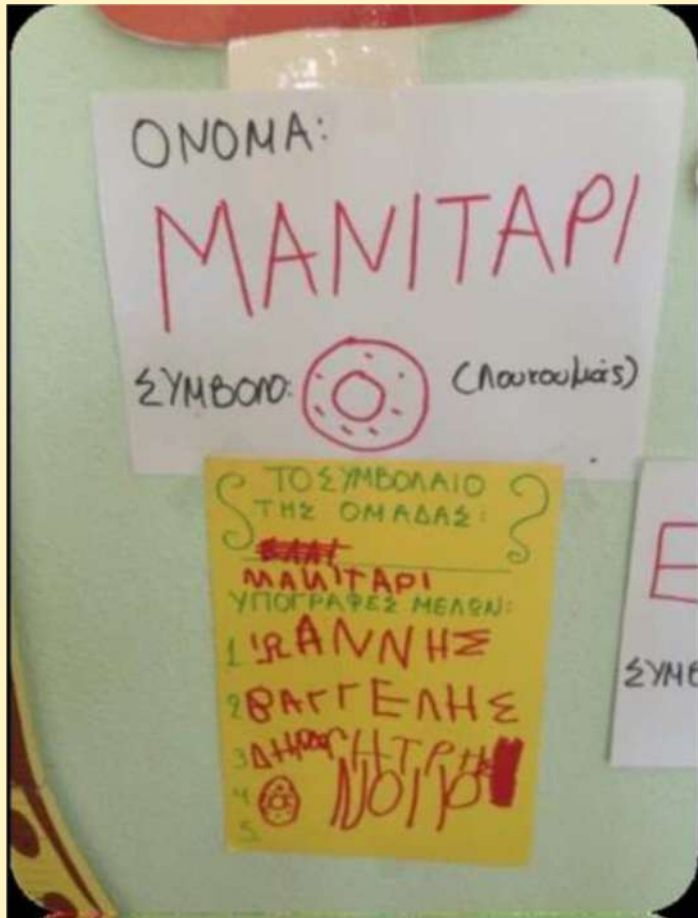 ΟΝΟΜΑ:
ΜΑΝΙΤΑΡΙ
ΣΥΜΒΟΛΟ: (Λουκουμάς)
ΤΟ ΣΥΜΒΟΛΑΙΟ
ΤΗΣ ΟΜΑΔΑΣ:
ΜΑΝΙΤΑΡΙ
ΥΠΟΓΡΑΦΕΣ ΜΕΛΩΝ:
1 ΙΩΑΝΝΗΣ
2 ΒΑΓΓΕΛΗΣ
3
4
5
Ε
ΣΥΜΒ